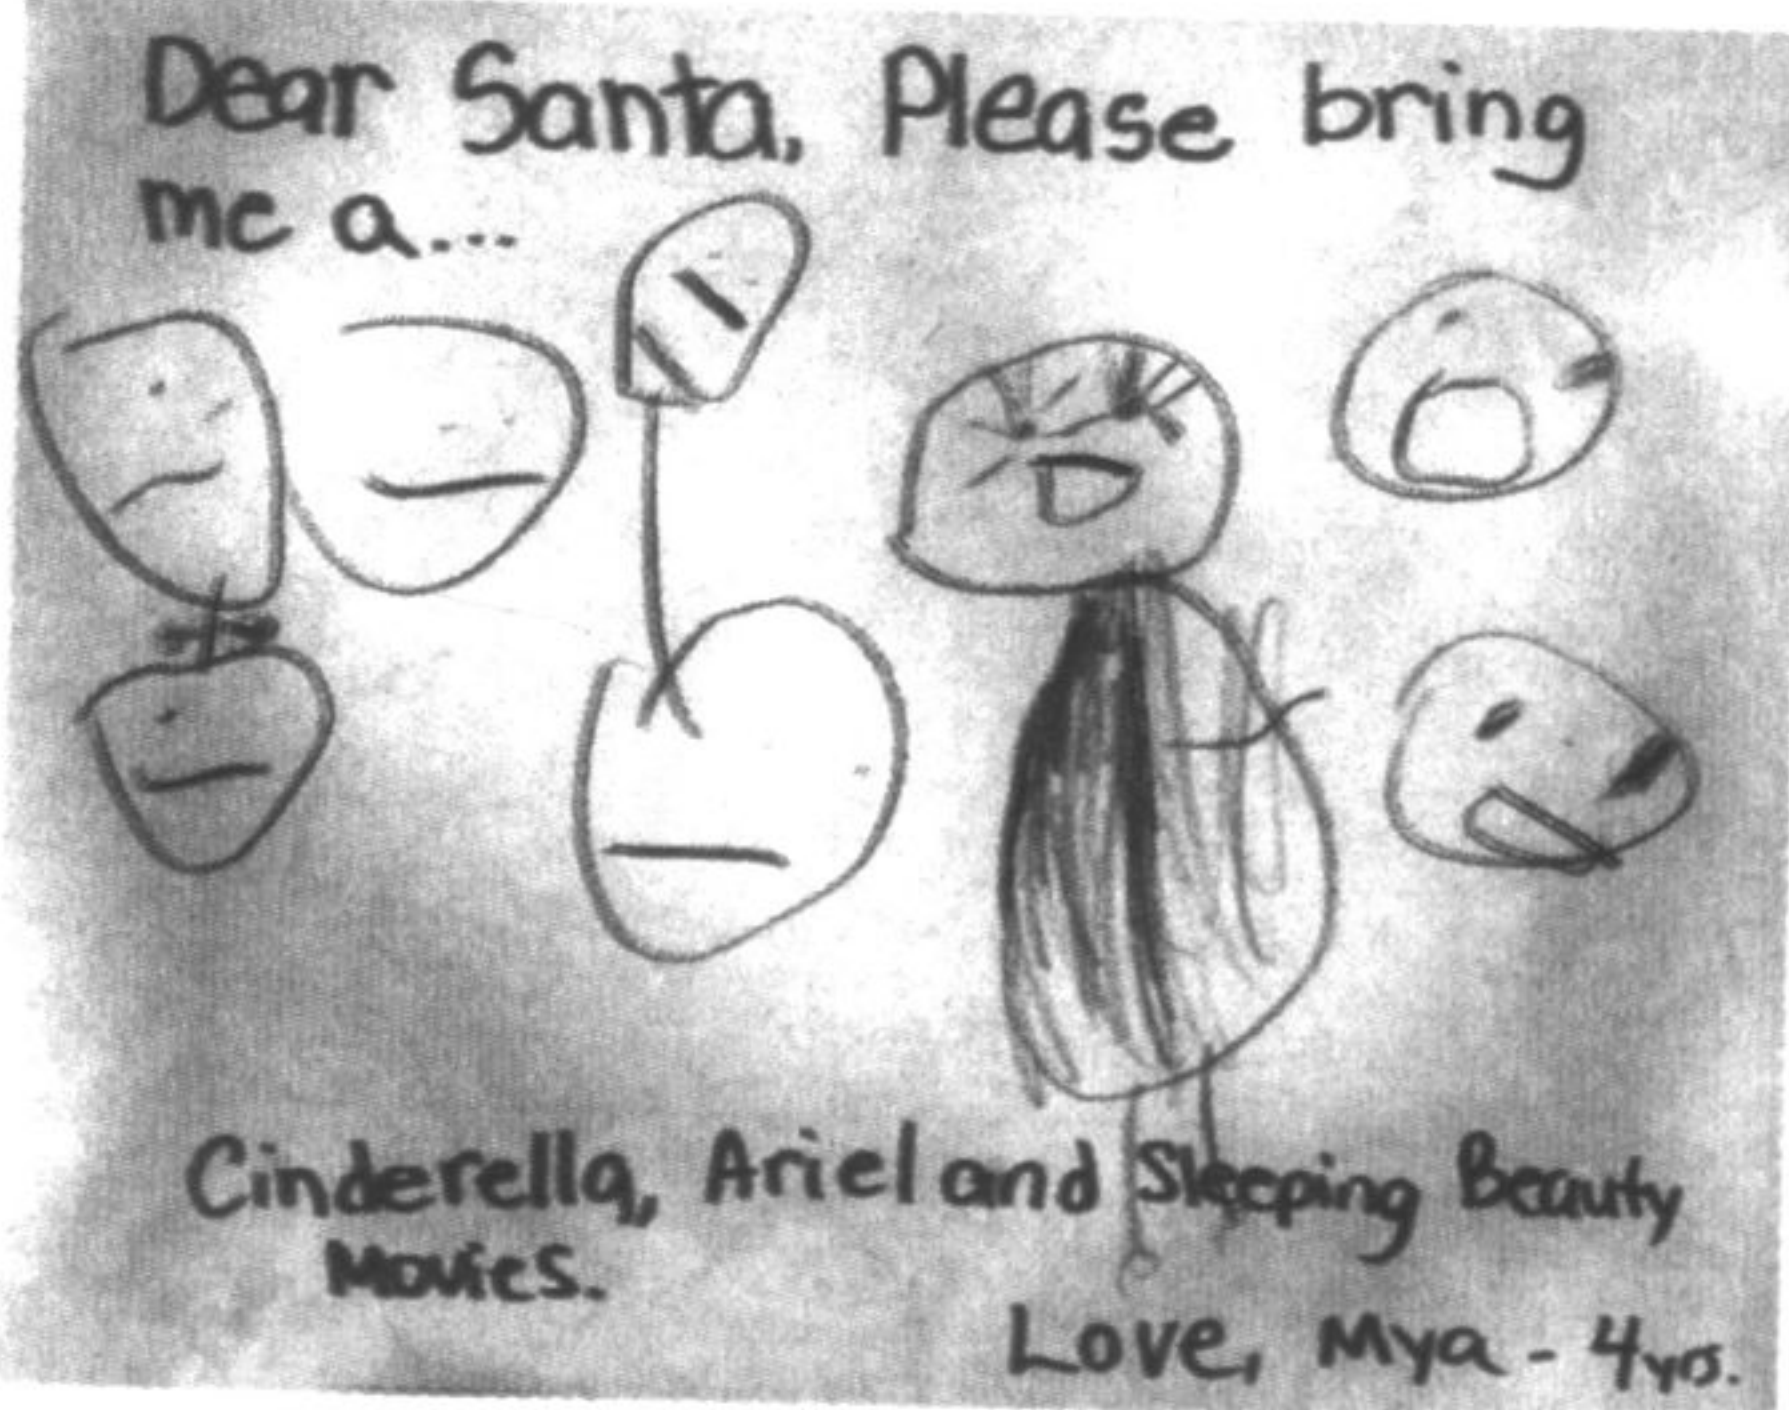 Dear Santa, Please bring
me a....
Cinderella, Ariel and Sleeping Beauty
Movies.
Love, Mya - 4yrs.